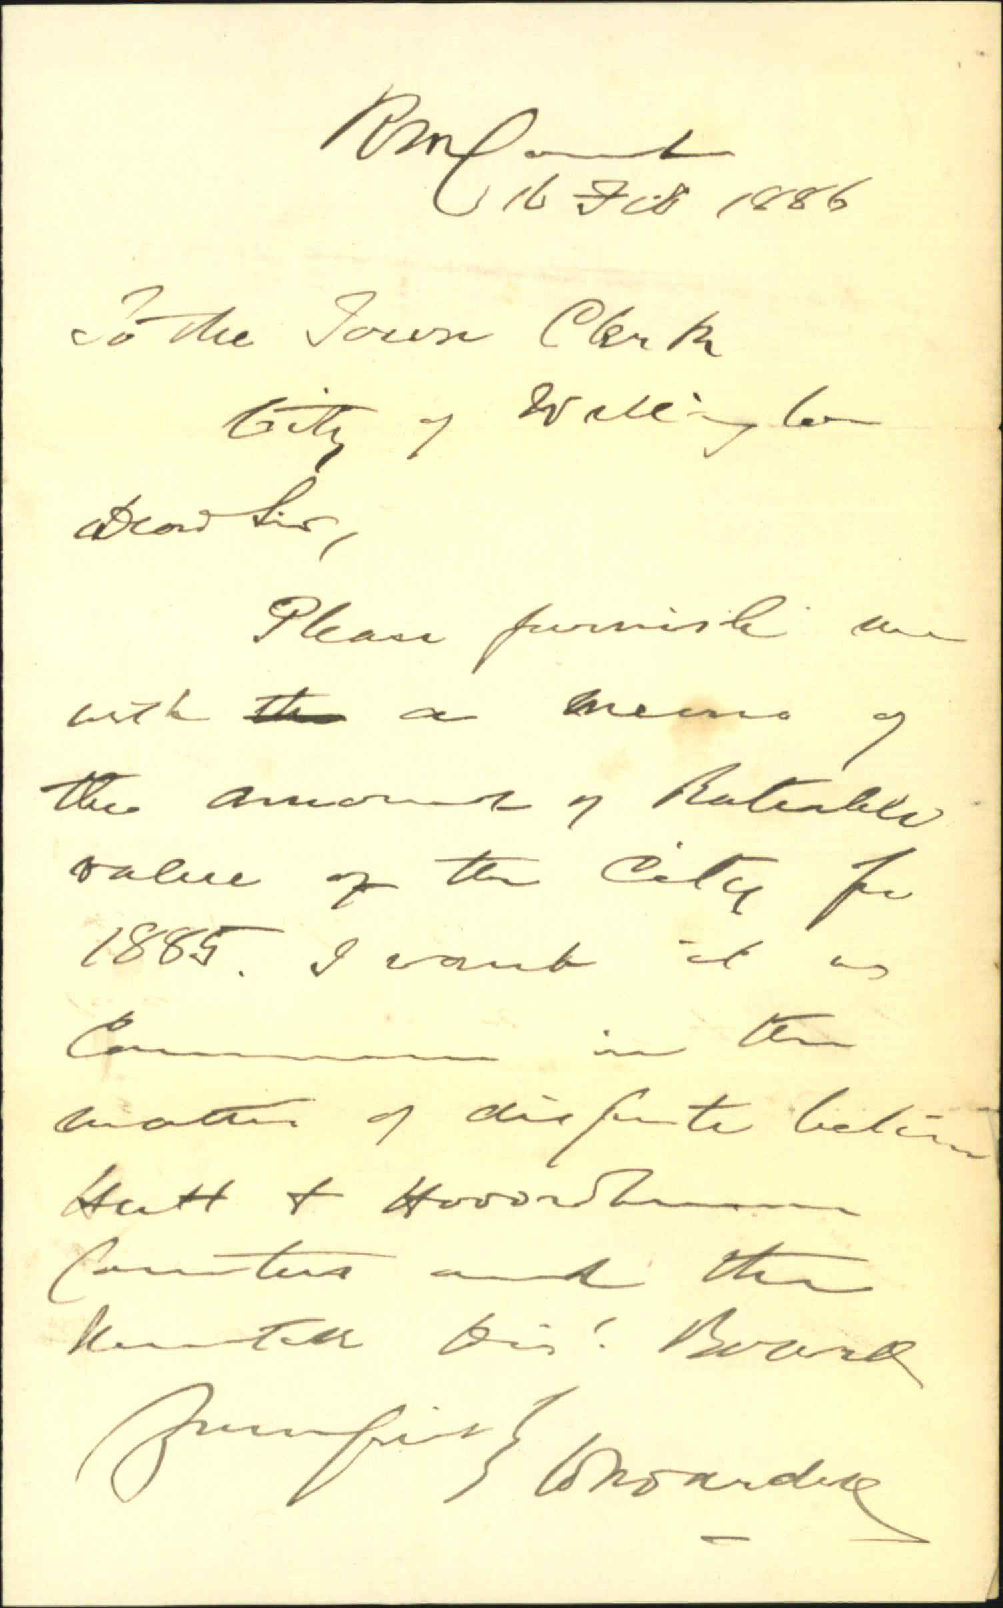 RM Court
16 Feb 1886
To the Town Clerk
City of Wellington
Dear Sir,
Please furnish me
with the a memo of
the amount of Rateable
value of the City for
1885. I want it as
Commissioner in the
matter of dispute between
Hutt & Horowhenua
Counties and the
Dis! Board
Yours faithfully
Wardell